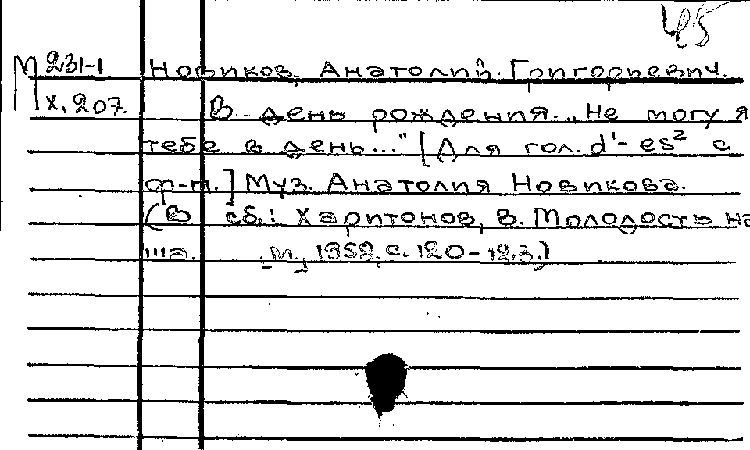 485
М 231-1 Новиков, Анатолий Григорьевич.
х. 207. В день рождения. „Не могу я
тебе в день..." [Для гол. d'-es² с
ф-п.] Муз. Анатолия Новикова.
(В сб.: Харитонов, В. Молодость на
ша. М., 1959, с. 120-123.)